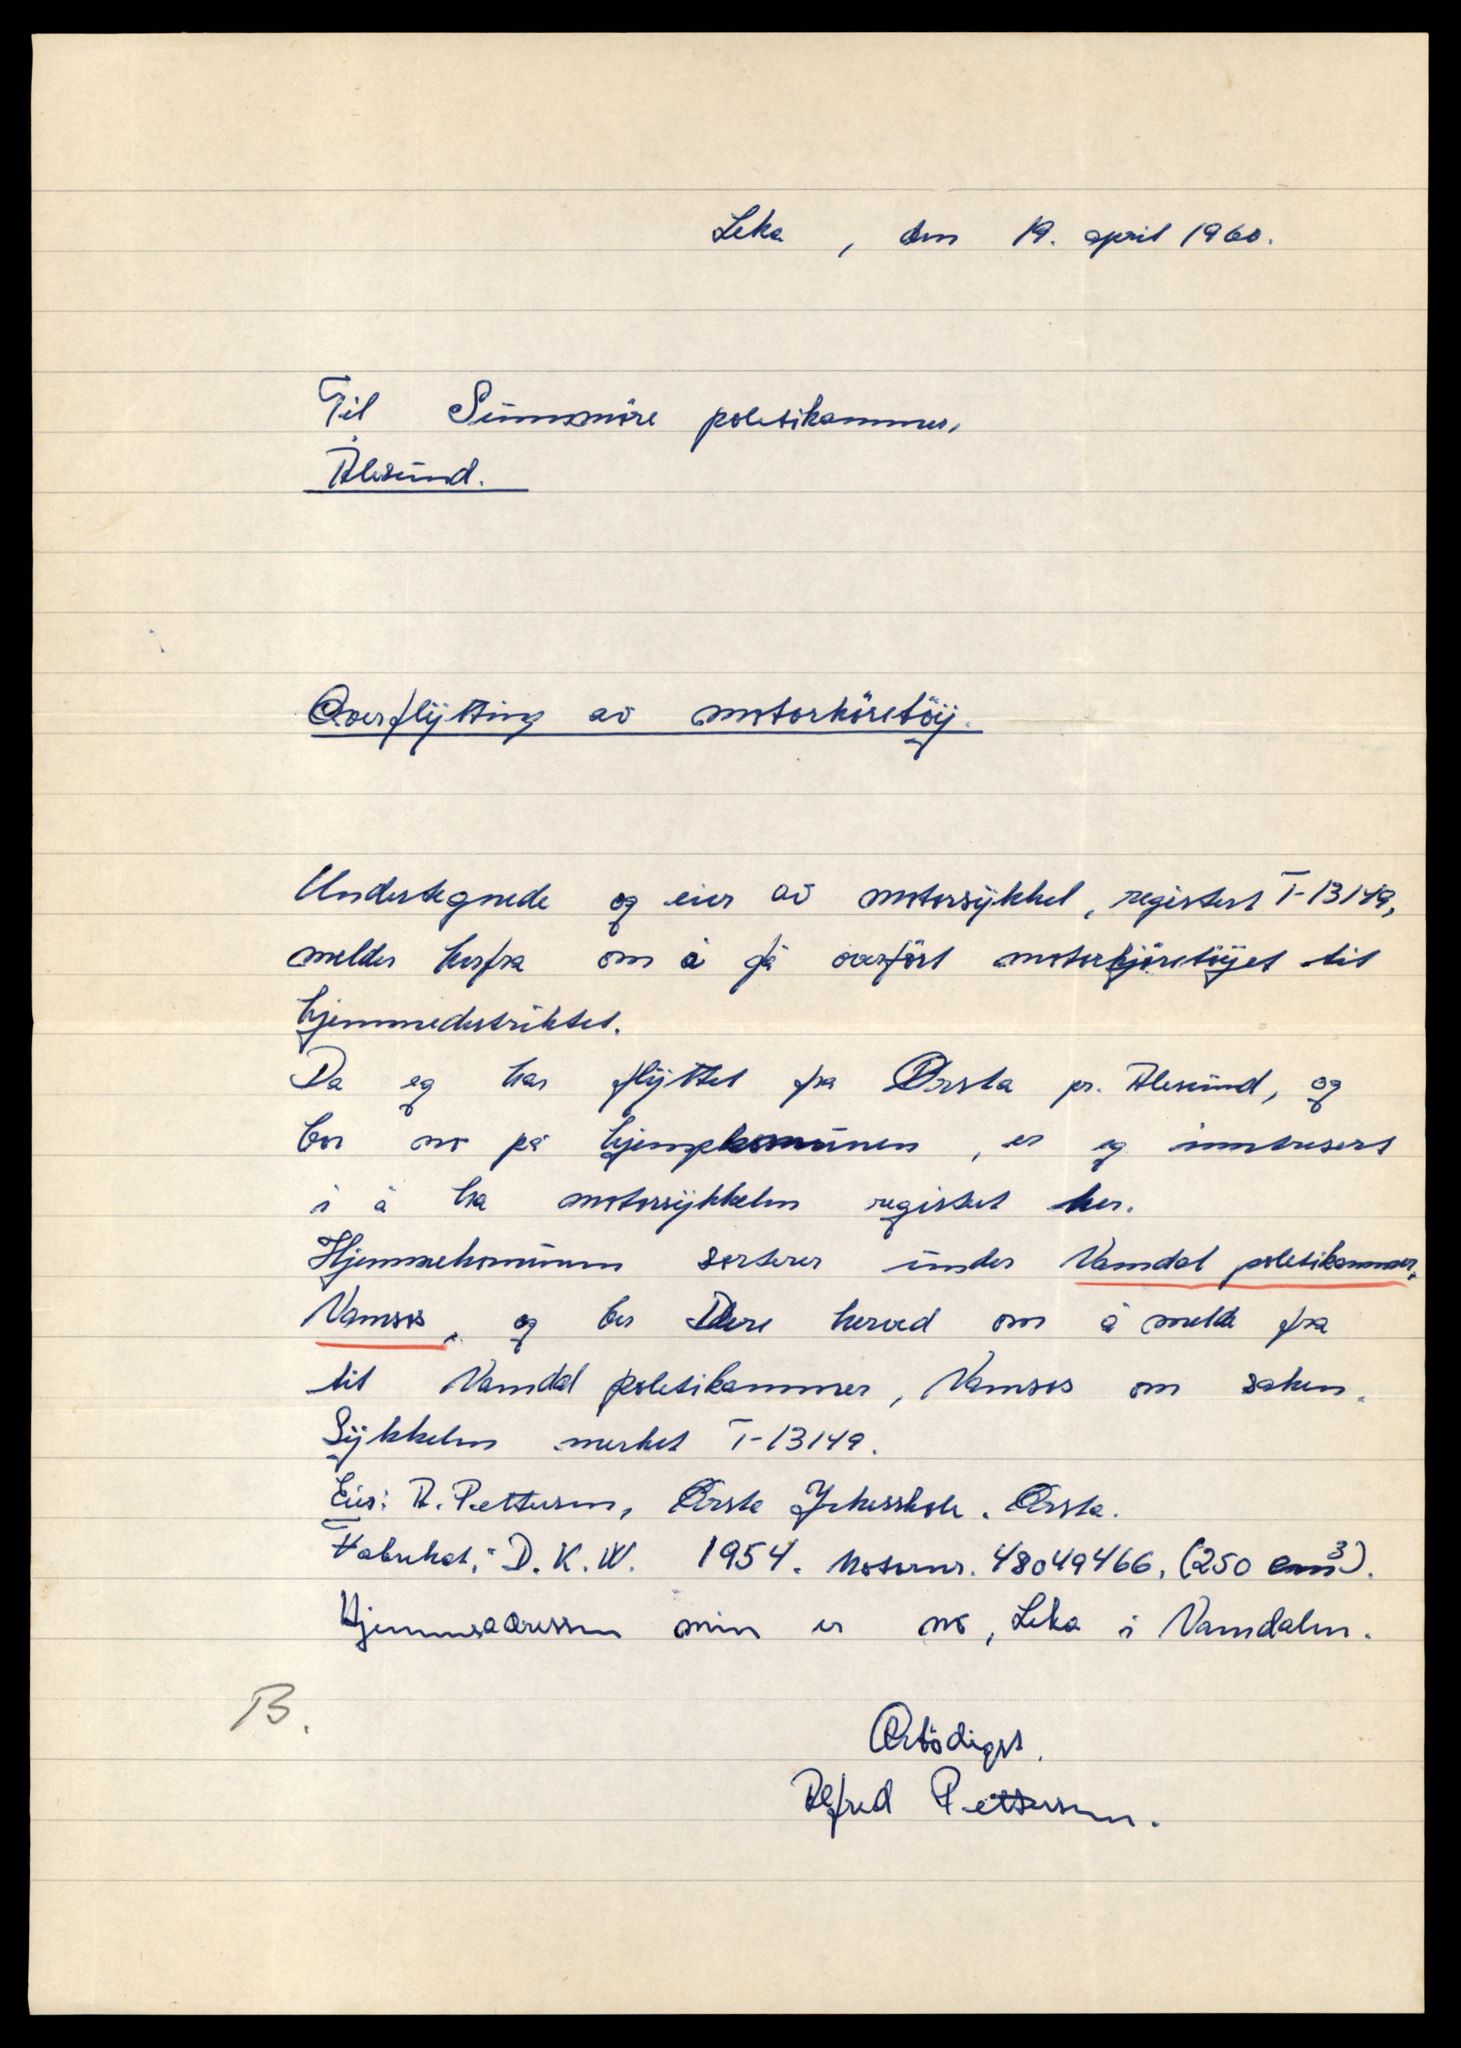 Leka, den 19. april 1960.
Til Sunnmöre politikammer,
Ålesund.
Overflytting av motorköretöy.
Undertegnede og eier av motorsykkel, registert T-13149,
melder herfra om å få overfört motorkjöretöyet til
hjemmedistriktet.
Da eg har flyttet fra Örsta pr. Ålesund, og
bor no på hjempkommunen, er eg intresert
i å ha motorsykkelen registret her.
Hjemmekommunen sorterer under Namdal politikammer,
Namsos, og ber Dere herved om å melde fra
til Namdal politikammer, Namsos om saken.
Sykkelen merket T-13149.
Eier: A. Pettersen, Örsta Yrkesskole. Örsta.
Fabrikat: D.K.W. 1954. Motornr. 48049466. (250 cm³).
Hjemmeadressen min er no, Leka i Namdalen.
B.
Ærbödigst.
Alfred Pettersen.